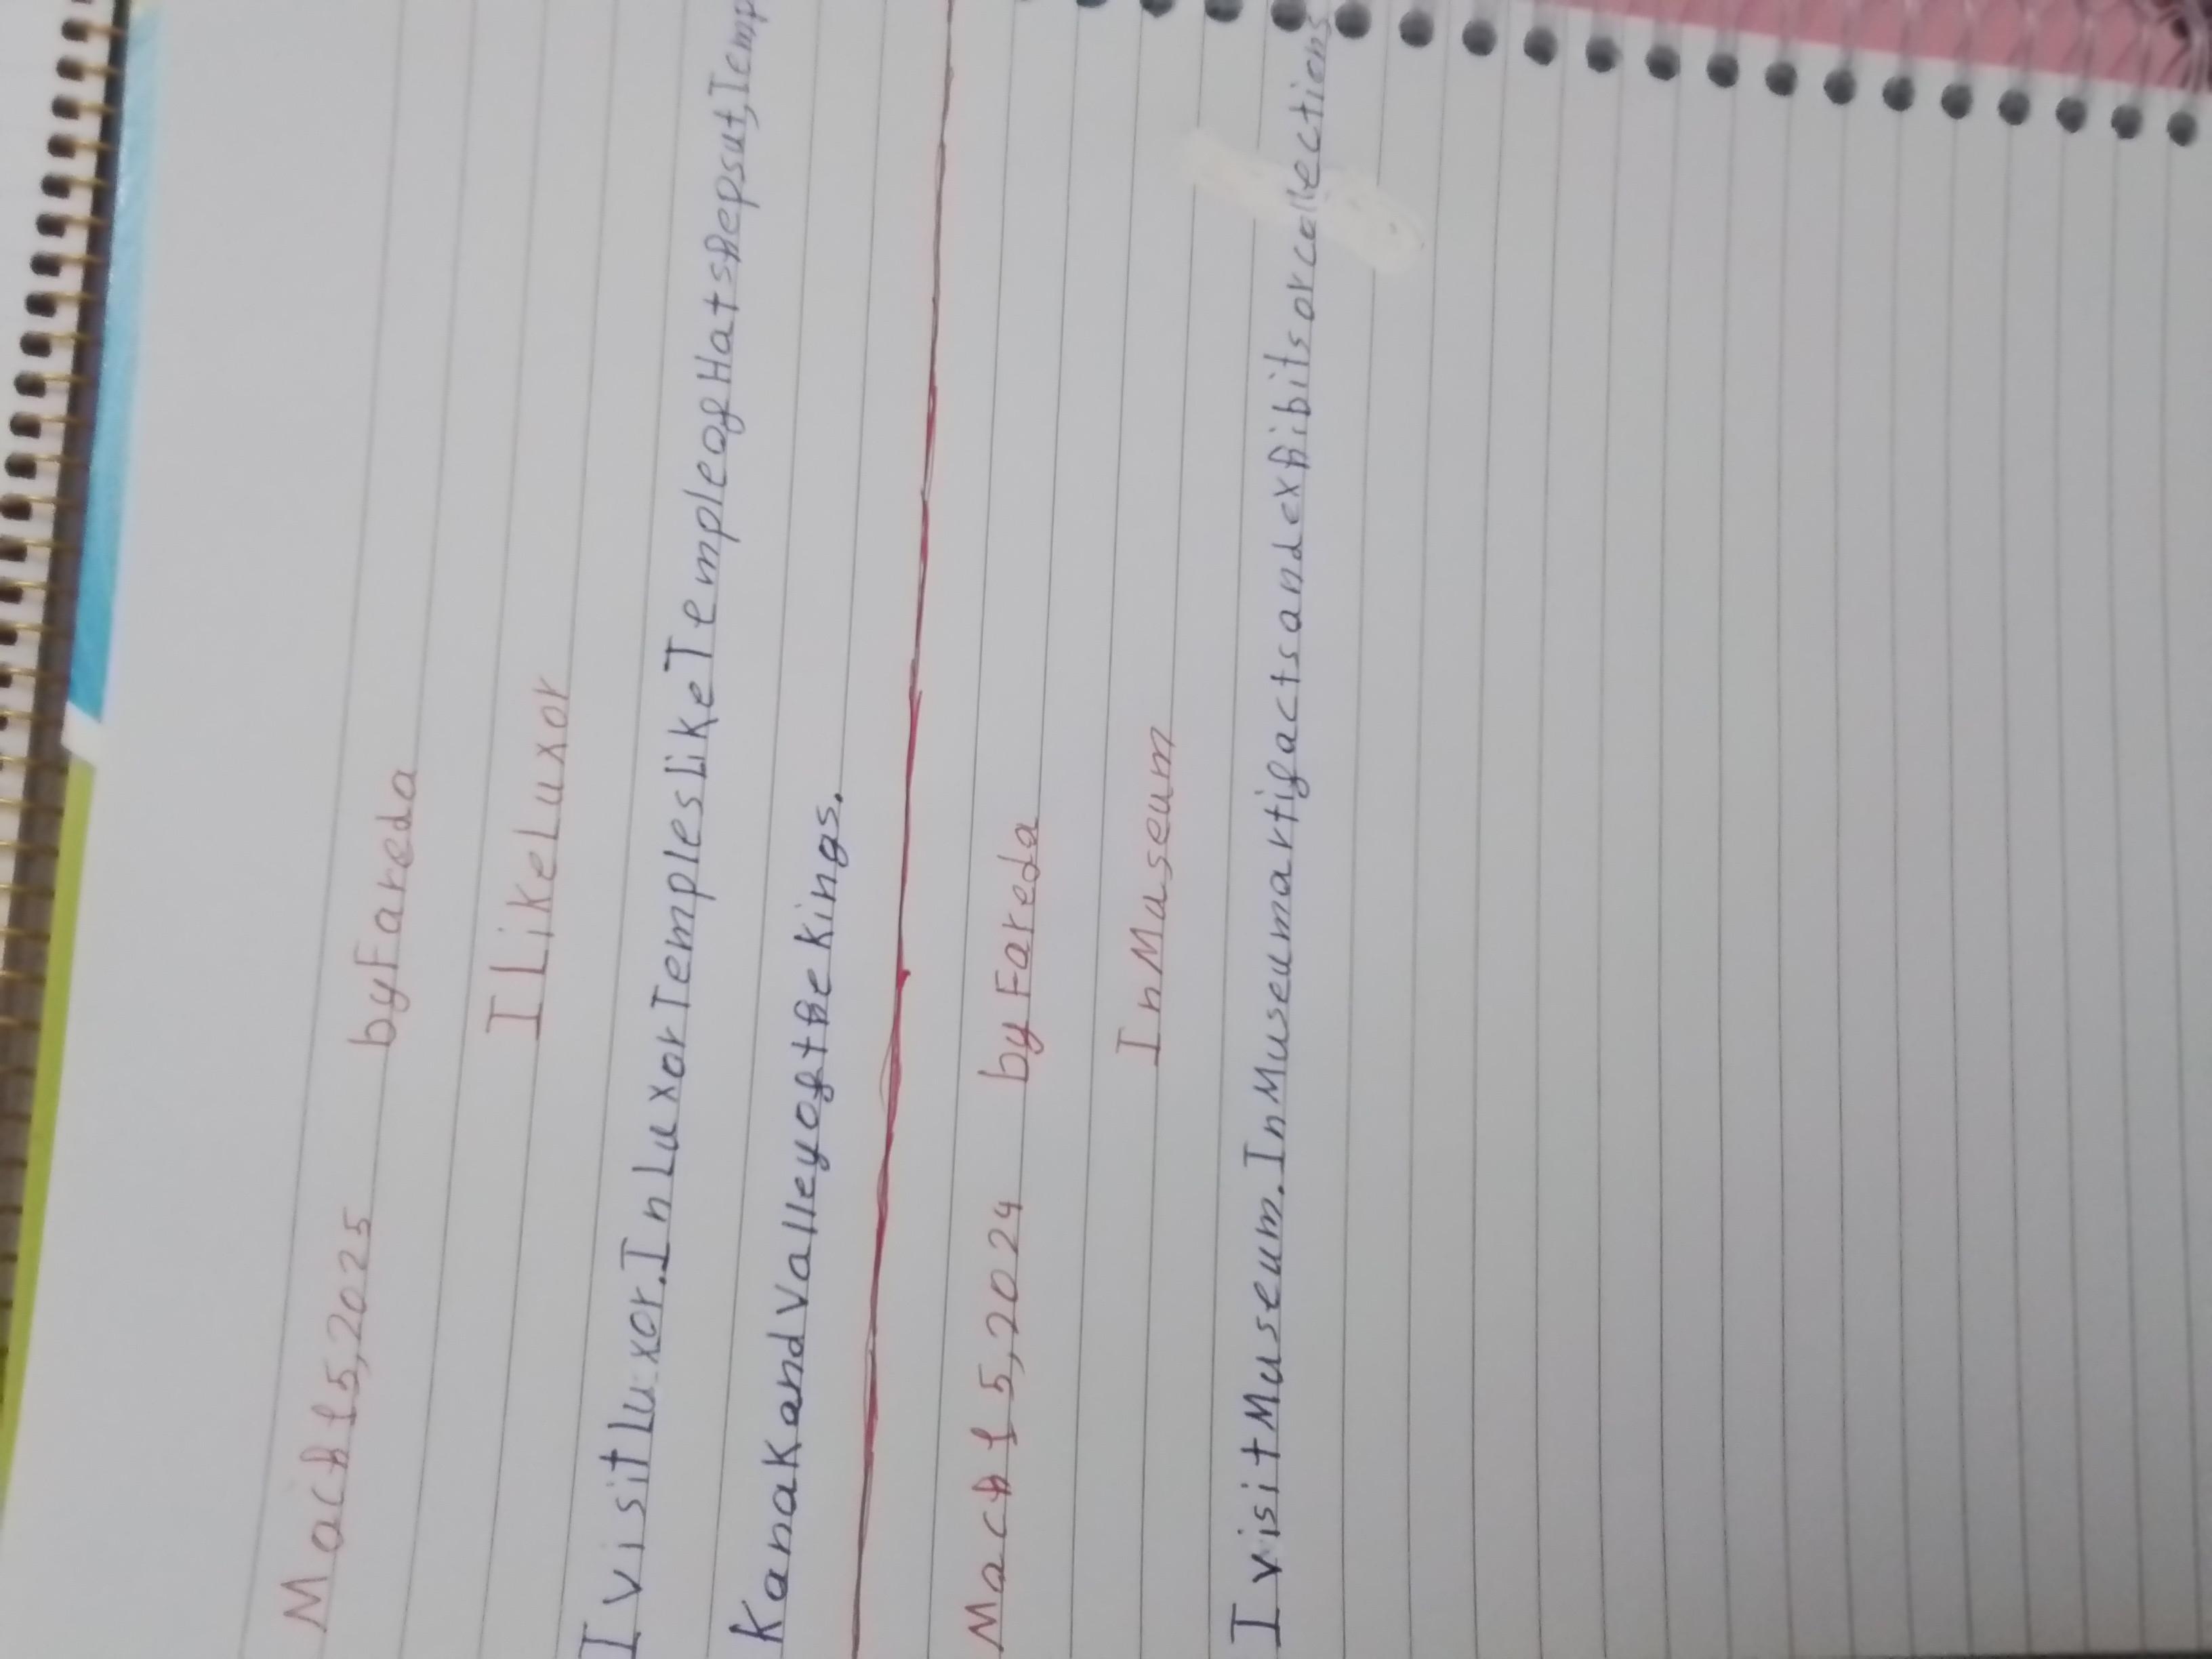 Mach 15,2025 by Fareda
I Like Luxor
I visit Luxor. In Luxor Temples Like Temple of Hatshepsut, Temp
Kanak and Valley of the Kings.
Mach 15,2024 by Fareda
In Museum
I visit Museum. In Museum artifacts and exhibits or collections